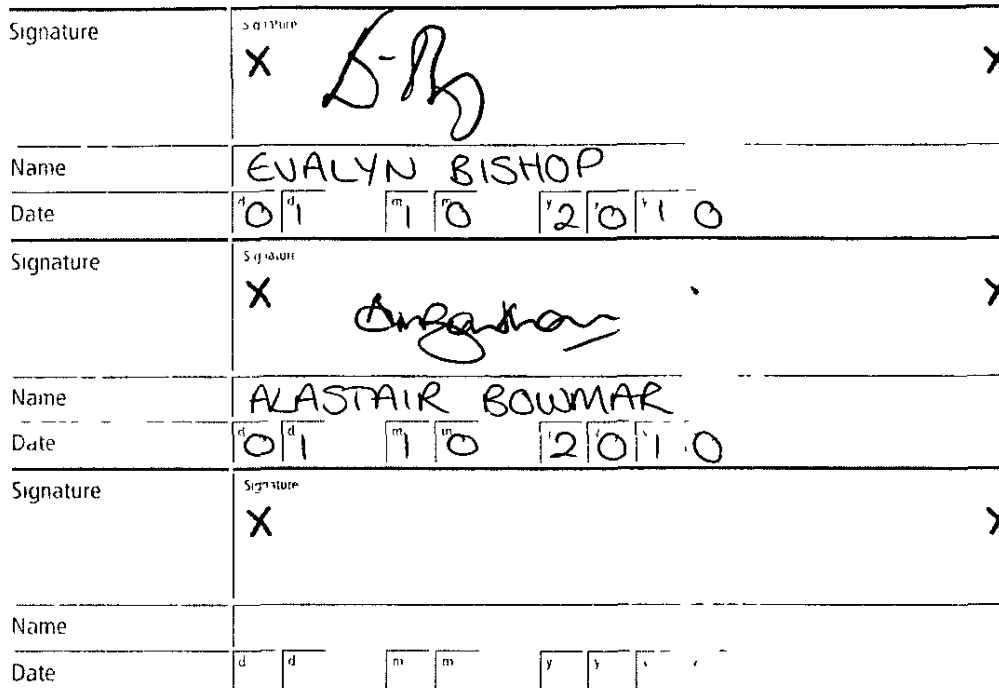 Signature Signature
X X
Name EVALYN BISHOP
Date d0 d1 m1 m0 y2 y0 y1 0
Signature Signature
X X
Name ALASTAIR BOWMAR
Date d0 d1 m1 m0 2 0 1 0
Signature Signature
X X
Name
Date d d m m y y